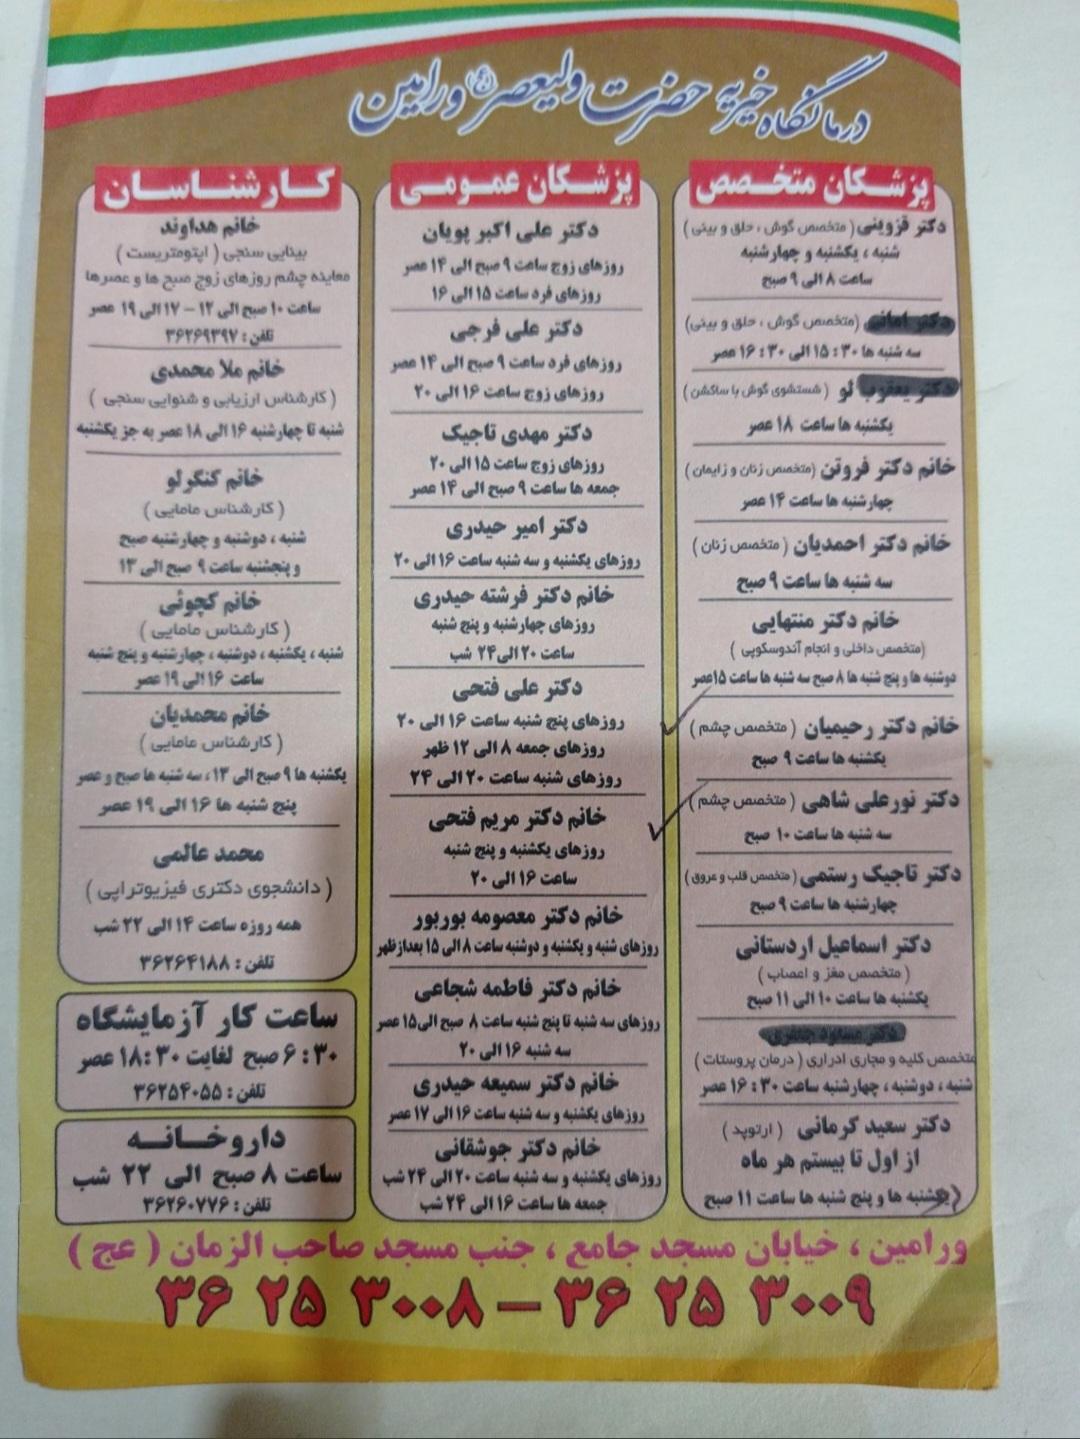 درمانگاه خیریه حضرت ولیعصر (عج) ورامین
پزشکان متخصص
دکتر قزوینی (متخصص گوش ، حلق و بینی)
شنبه ، یکشنبه و چهارشنبه
ساعت ۸ الی ۹ صبح
دکتر امانی (متخصص گوش ، حلق و بینی)
سه شنبه ها ۱۵:۳۰ الی ۱۶:۳۰ عصر
دکتر یعقوب لو (شستشوی گوش با ساکشن)
یکشنبه ها ساعت ۱۸ عصر
خانم دکتر فروتن (متخصص زنان و زایمان)
چهارشنبه ها ساعت ۱۴ عصر
خانم دکتر احمدیان (متخصص زنان)
سه شنبه ها ساعت ۹ صبح
خانم دکتر منتهایی
(متخصص داخلی و انجام آندوسکوپی)
دوشنبه ها و پنج شنبه ها ۸ صبح سه شنبه ها ساعت ۱۵ عصر
خانم دکتر رحیمیان (متخصص چشم)
یکشنبه ها ساعت ۹ صبح
دکتر نورعلی شاهی (متخصص چشم)
سه شنبه ها ساعت ۱۰ صبح
دکتر تاجیک رستمی (متخصص قلب و عروق)
چهارشنبه ها ساعت ۹ صبح
دکتر اسماعیل اردستانی
(متخصص مغز و اعصاب)
یکشنبه ها ساعت ۱۰ الی ۱۱ صبح
دکتر مسعود جعفری
متخصص کلیه و مجاری ادراری (درمان پروستات)
شنبه ، دوشنبه ، چهارشنبه ساعت ۱۶:۳۰ عصر
دکتر سعید کرمانی (ارتوپد)
از اول تا بیستم هر ماه
شنبه ها و پنج شنبه ها ساعت ۱۱ صبح
پزشکان عمومی
دکتر علی اکبر پویان
روزهای زوج ساعت ۹ صبح الی ۱۴ عصر
روزهای فرد ساعت ۱۵ الی ۱۶
دکتر علی فرجی
روزهای فرد ساعت ۹ صبح الی ۱۴ عصر
روزهای زوج ساعت ۱۶ الی ۲۰
دکتر مهدی تاجیک
روزهای زوج ساعت ۱۵ الی ۲۰
جمعه ها ساعت ۹ صبح الی ۱۴ عصر
دکتر امیر حیدری
روزهای یکشنبه و سه شنبه ساعت ۱۶ الی ۲۰
خانم دکتر فرشته حیدری
روزهای چهارشنبه و پنج شنبه
ساعت ۲۰ الی ۲۴ شب
دکتر علی فتحی
روزهای پنج شنبه ساعت ۱۶ الی ۲۰
روزهای جمعه ۸ الی ۱۲ ظهر
روزهای شنبه ساعت ۲۰ الی ۲۴
خانم دکتر مریم فتحی
روزهای یکشنبه و پنج شنبه
ساعت ۱۶ الی ۲۰
خانم دکتر معصومه بوربور
روزهای شنبه و یکشنبه و دوشنبه ساعت ۸ الی ۱۵ بعدازظهر
خانم دکتر فاطمه شجاعی
روزهای سه شنبه تا پنج شنبه ساعت ۸ صبح الی ۱۵ عصر
سه شنبه ۱۶ الی ۲۰
خانم دکتر سمیعه حیدری
روزهای یکشنبه و سه شنبه ساعت ۱۶ الی ۱۷ عصر
خانم دکتر جوشقانی
روزهای یکشنبه و سه شنبه ساعت ۲۰ الی ۲۴ شب
جمعه ها ساعت ۱۶ الی ۲۴ شب
کارشناسان
خانم هداوند
بینایی سنجی (اپتومتریست)
معاینه چشم روزهای زوج صبح ها و عصرها
ساعت ۱۰ صبح الی ۱۲ - ۱۷ الی ۱۹ عصر
تلفن : ۳۶۲۶۹۳۹۷
خانم ملا محمدی
(کارشناس ارزیابی و شنوایی سنجی)
شنبه تا چهارشنبه ۱۶ الی ۱۸ عصر به جز یکشنبه
خانم کنگرلو
(کارشناس مامایی)
شنبه ، دوشنبه و چهارشنبه صبح
و پنجشنبه ساعت ۹ صبح الی ۱۳
خانم کچوئی
(کارشناس مامایی)
شنبه ، یکشنبه ، دوشنبه ، چهارشنبه و پنج شنبه
ساعت ۱۶ الی ۱۹ عصر
خانم محمدیان
(کارشناس مامایی)
یکشنبه ها ۹ صبح الی ۱۳ ، سه شنبه ها صبح و عصر
پنج شنبه ها ۱۶ الی ۱۹ عصر
محمد عالمی
(دانشجوی دکتری فیزیوتراپی)
همه روزه ساعت ۱۴ الی ۲۲ شب
تلفن : ۳۶۲۶۴۱۸۸
ساعت کار آزمایشگاه
۶:۳۰ صبح لغایت ۱۸:۳۰ عصر
تلفن : ۳۶۲۵۴۰۵۵
داروخانه
ساعت ۸ صبح الی ۲۲ شب
تلفن : ۳۶۲۶۰۷۷۶
ورامین ، خیابان مسجد جامع ، جنب مسجد صاحب الزمان (عج)
۳۶ ۲۵ ۳۰۰۸ – ۳۶ ۲۵ ۳۰۰۹